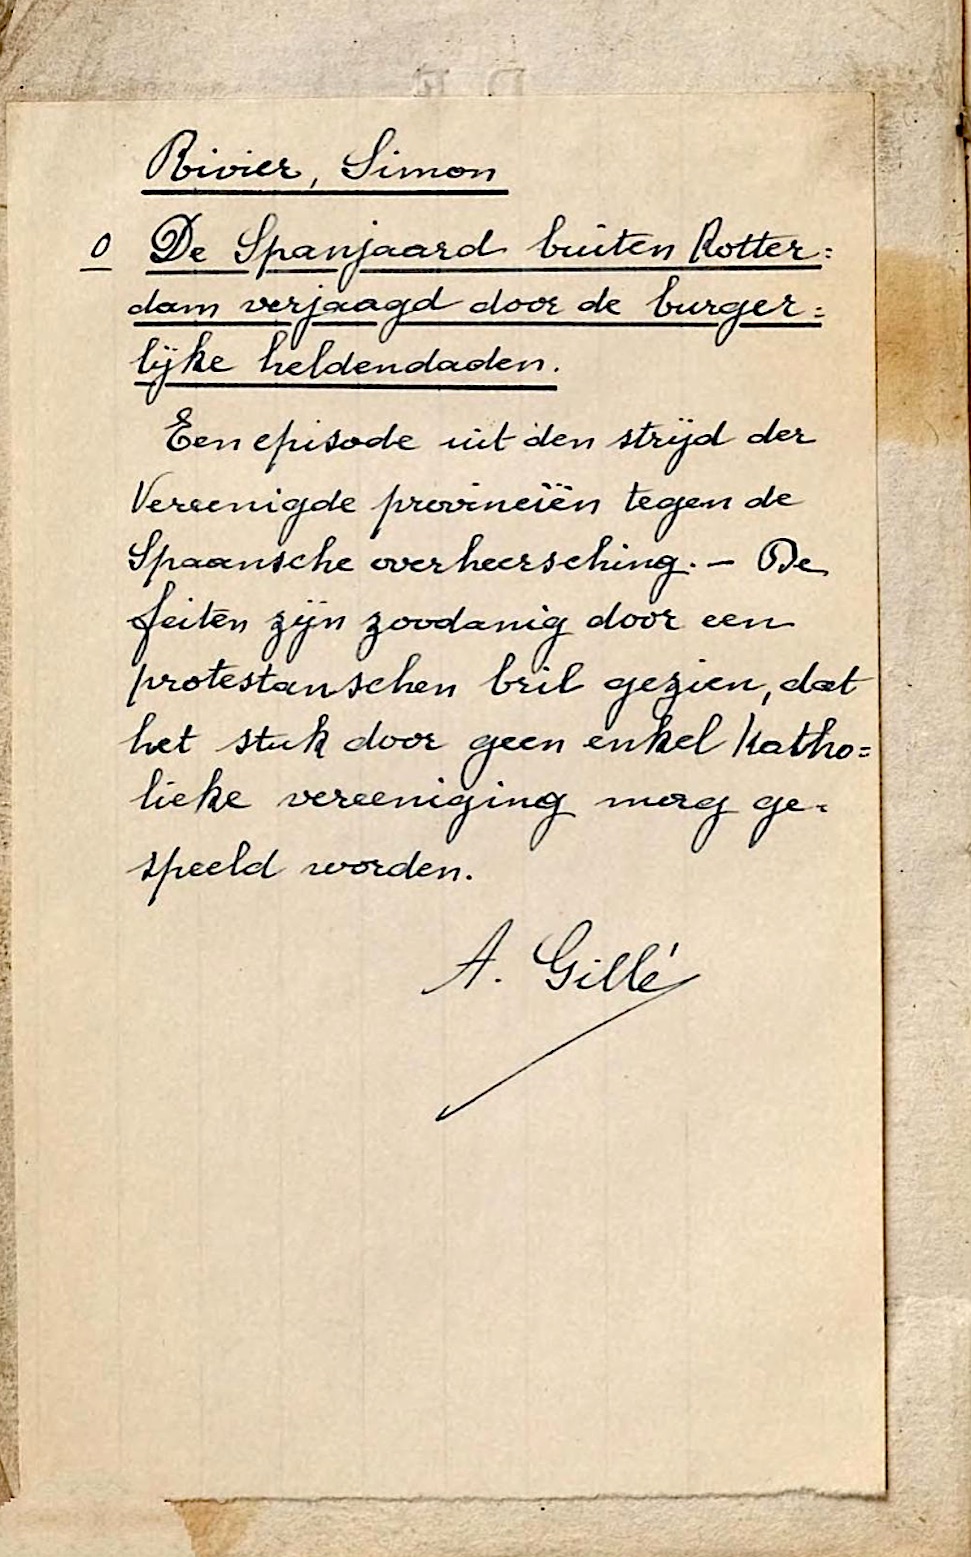 Rivier, Simon
0 De Spanjaard buiten Rotter=
dam verjaagd door de burger=
lijke heldendaden.
Een episode uit den strijd der
Vereenigde provincïën tegen de
Spaansche overheersching. - De
feiten zijn zoodanig door een
protestanschen bril gezien, dat
het stuk door geen enkel Katho=
lieke vereeniging mag ge-
speeld worden.
A. Gillé